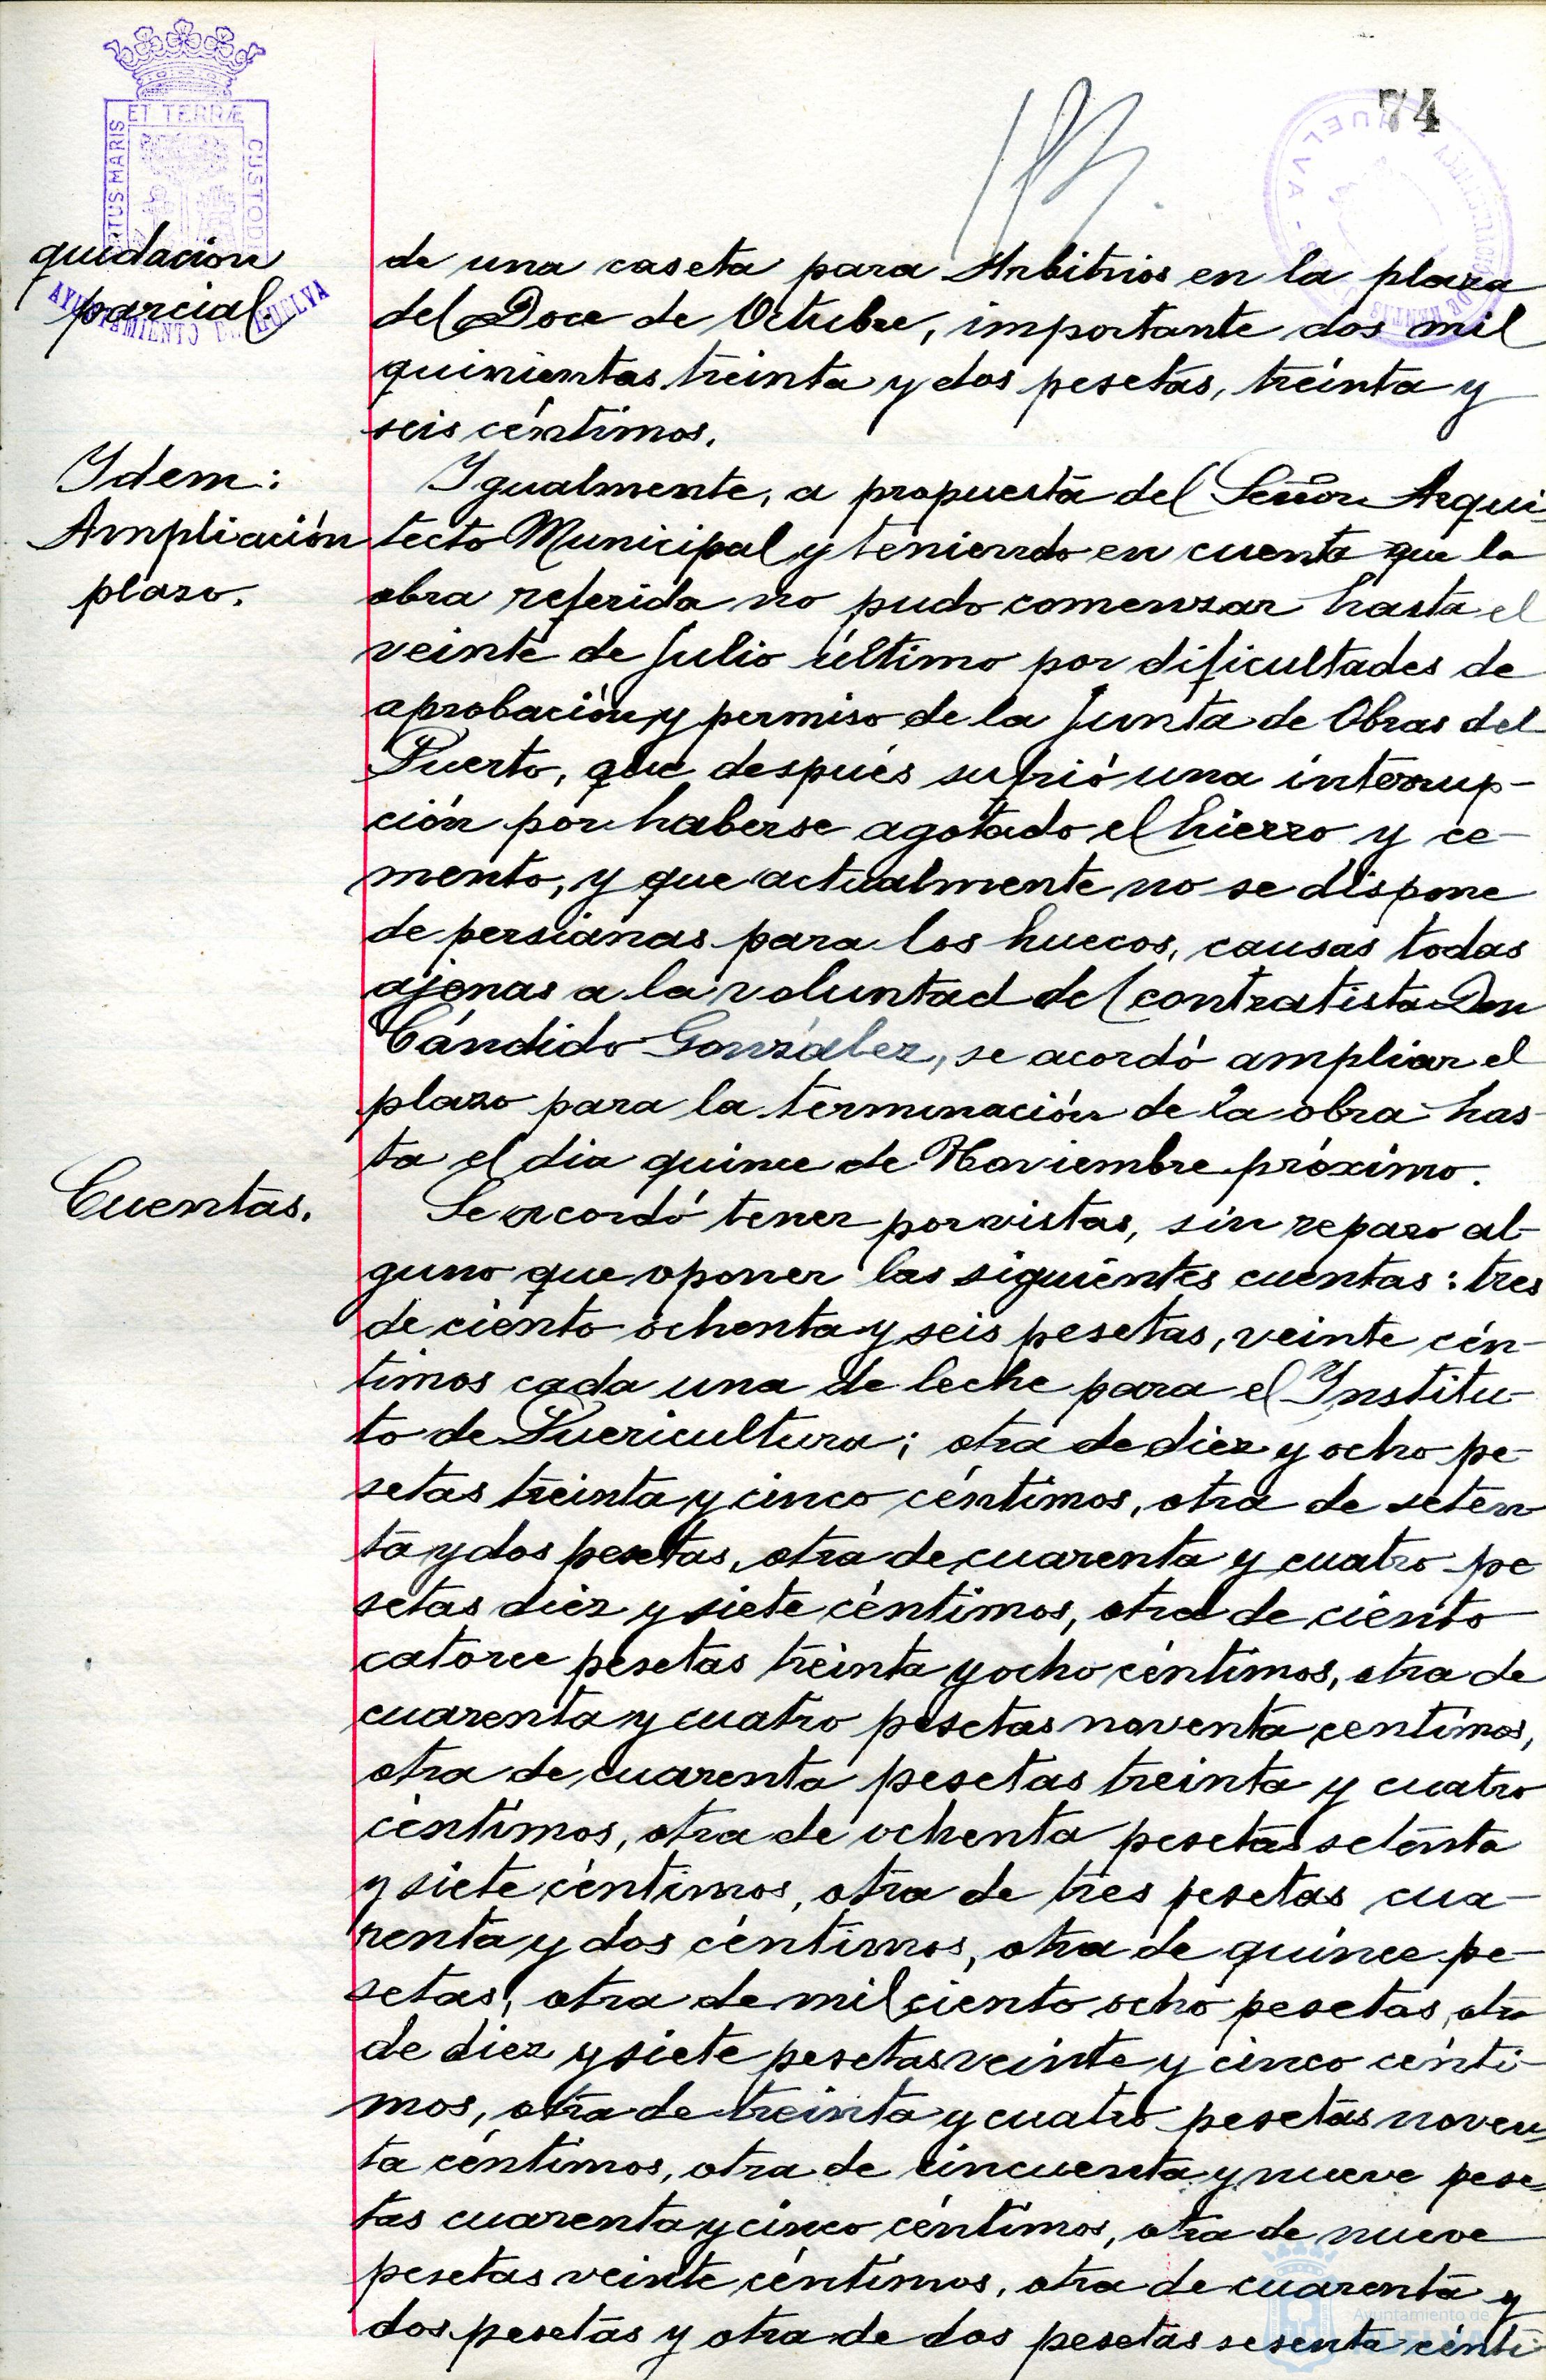 74
ET TERRÆ
RTUS MARIS
CUSTOD
AYUNTAMIENTO DE HUELVA
quidación
parcial.
de una caseta para Arbitrios en la plaza
del Doce de Octubre, importante dos mil
quinientas treinta y dos pesetas, treinta y
seis céntimos.
Idem:
Ampliación
plazo.
Igualmente, a propuesta del Señor Arqui-
tecto Municipal y teniendo en cuenta que la
obra referida no pudo comenzar hasta el
veinte de Julio último por dificultades de
aprobación y permiso de la Junta de Obras del
Puerto, que después sufrió una interrup-
ción por haberse agotado el hierro y ce-
mento, y que actualmente no se dispone
de persianas para los huecos, causas todas
ajenas a la voluntad del contratista Don
Cándido González, se acordó ampliar el
plazo para la terminación de la obra has-
ta el dia quince de Noviembre próximo.
Cuentas.
Se acordó tener por vistas, sin reparo al-
guno que oponer las siguientes cuentas: tres
de ciento ochenta y seis pesetas, veinte cén-
timos cada una de leche para el Institu-
to de Puericultura; otra de diez y ocho pe-
setas treinta y cinco céntimos, otra de seten
ta y dos pesetas, otra de cuarenta y cuatro pe
setas diez y siete céntimos, otra de ciento
catorce pesetas treinta y ocho céntimos, otra de
cuarenta y cuatro pesetas noventa centimos,
otra de cuarenta pesetas treinta y cuatro
céntimos, otra de ochenta pesetas setenta
y siete céntimos, otra de tres pesetas cua-
renta y dos céntimos, otra de quince pe-
setas, otra de mil ciento ocho pesetas, otra
de diez y siete pesetas veinte y cinco cénti-
mos, otra de treinta y cuatro pesetas noven-
ta céntimos, otra de cincuenta y nueve pese-
tas cuarenta y cinco céntimos, otra de nueve
pesetas veinte céntimos, otra de cuarenta y
dos pesetas y otra de dos pesetas sesenta cénti-
Ayuntamiento de
HUELVA